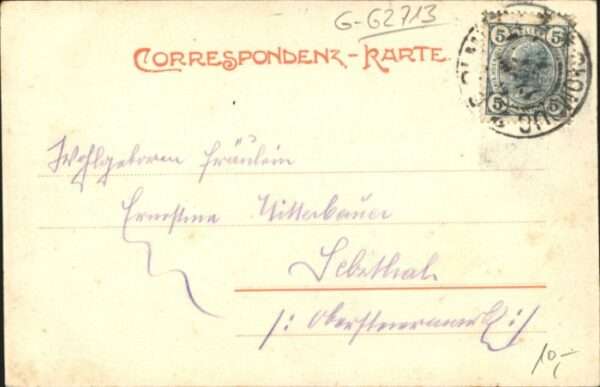 G-G2713
CORRESPONDENZ-KARTE.
5 5
5 5
Wohlgeboren Fräulein
Ernestine Mitterbauer
/: Obersteiermark :/
10,-